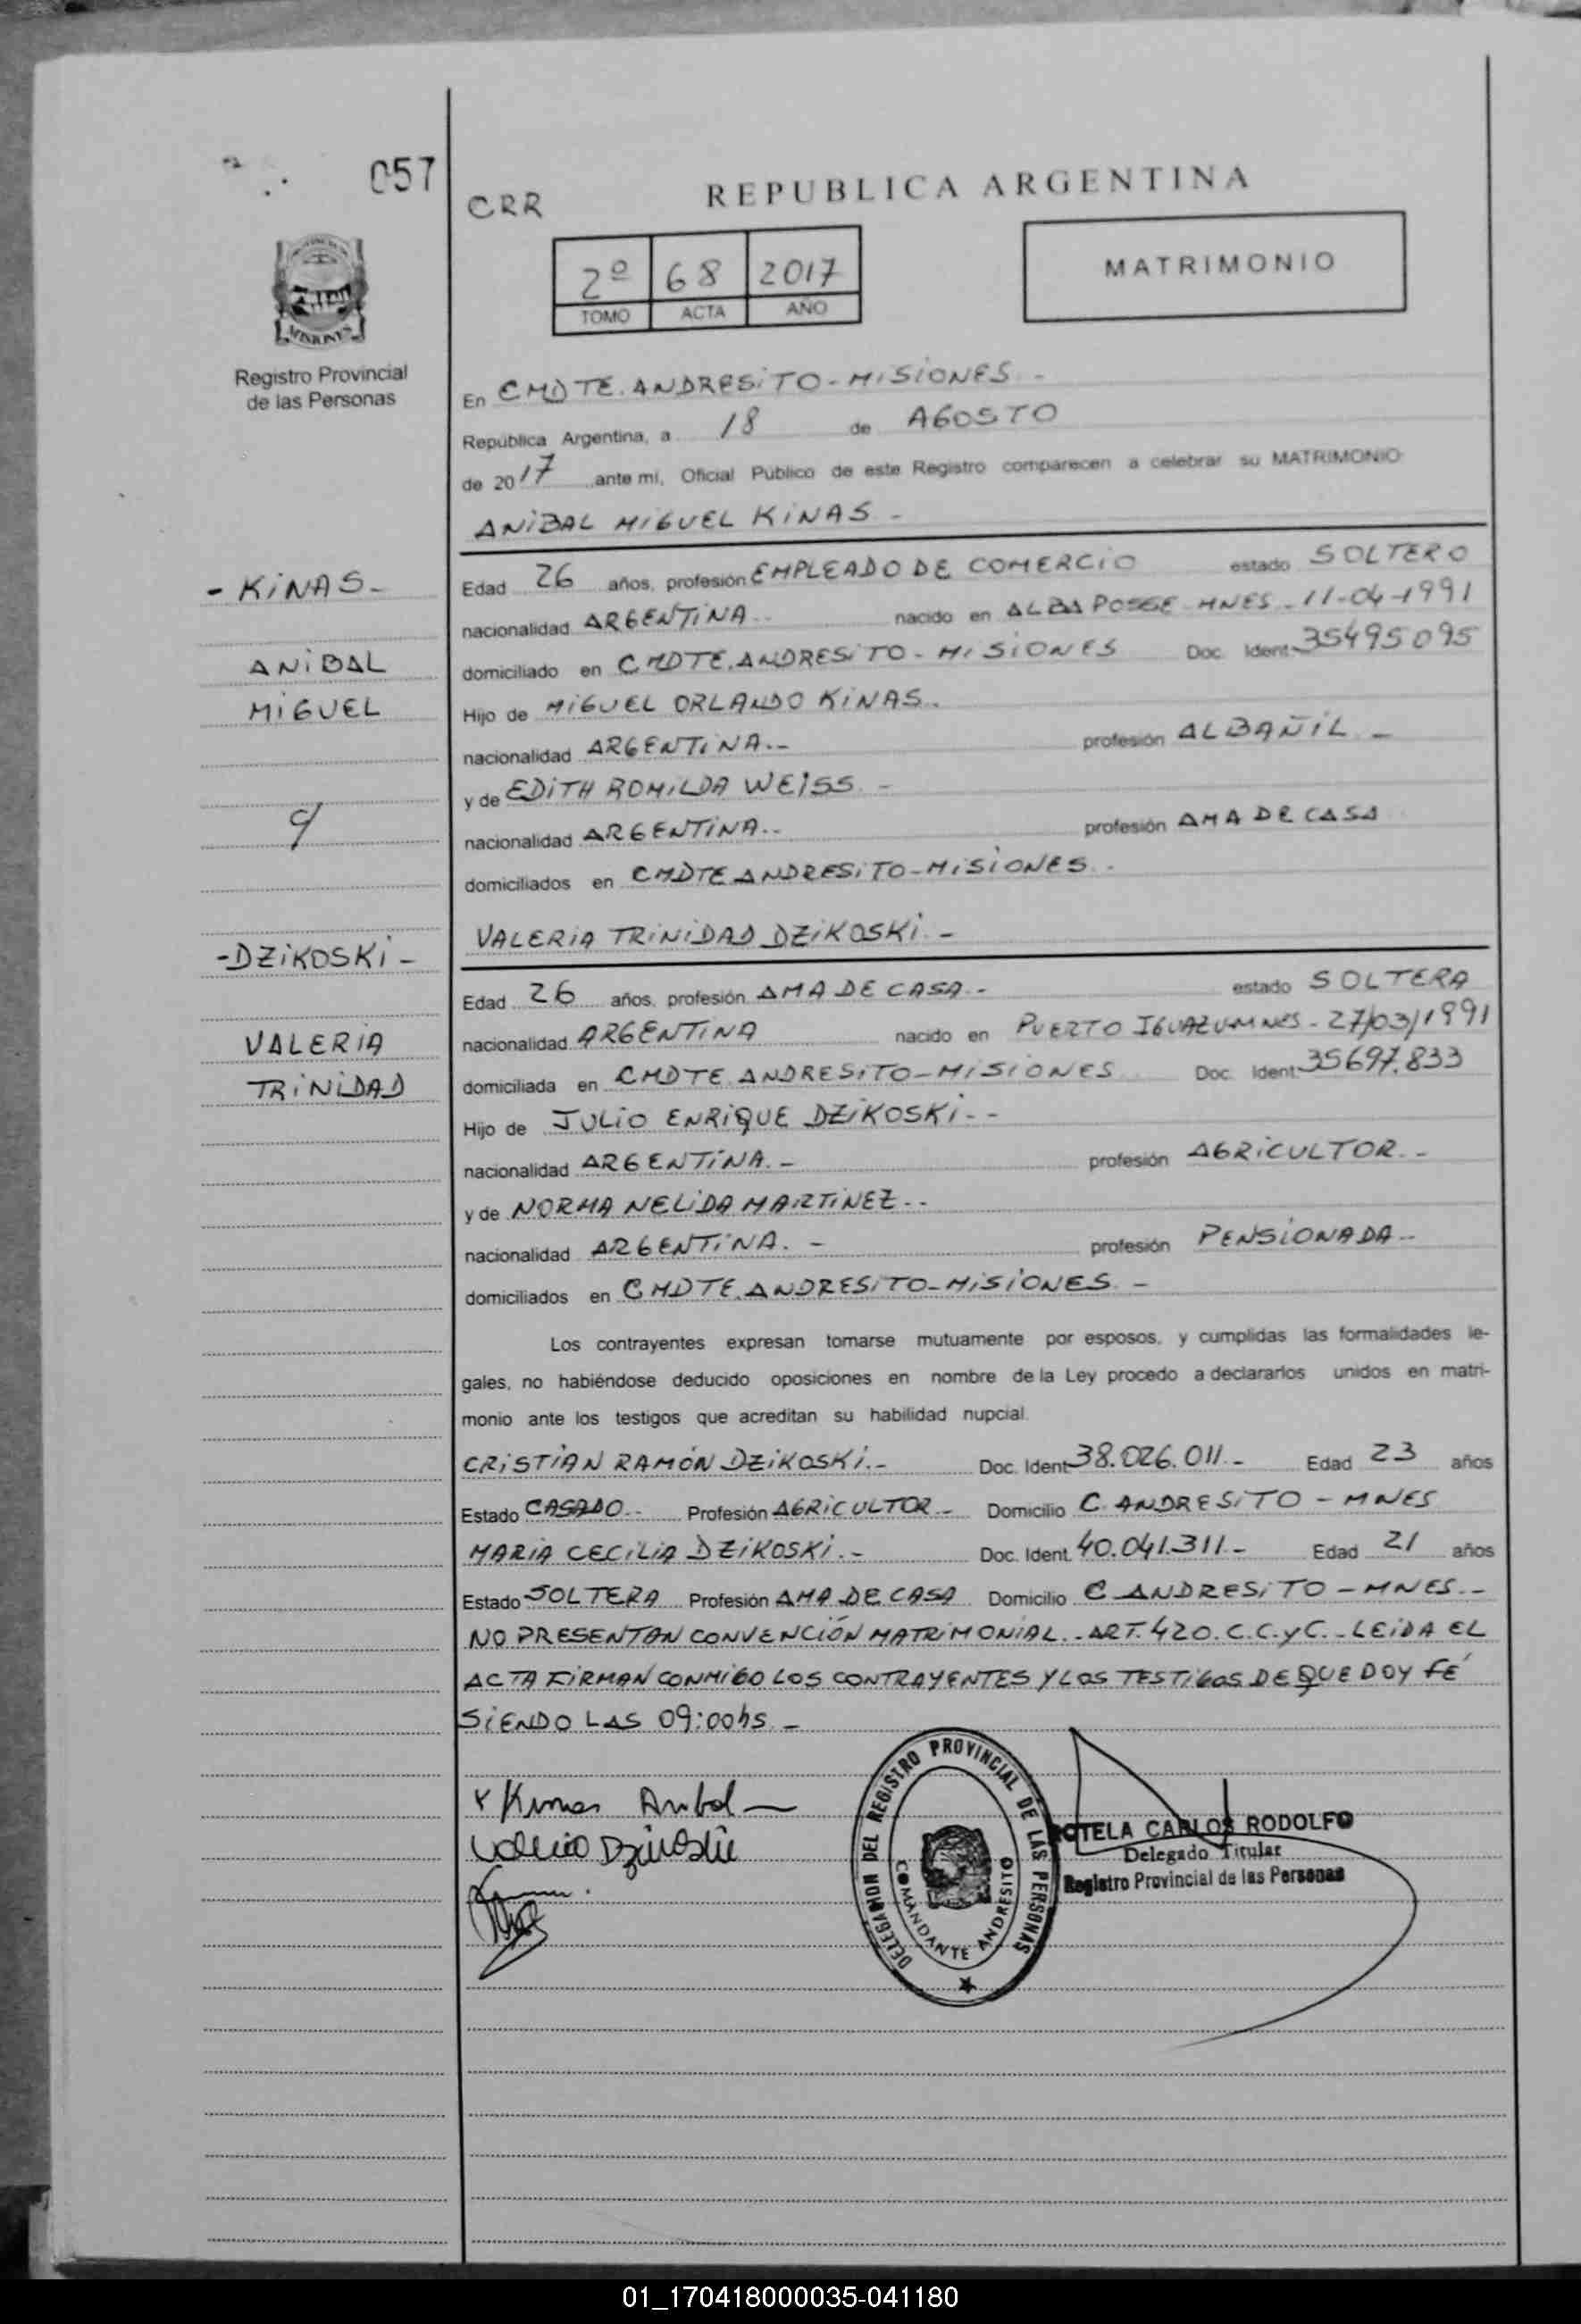 057
CRR
REPUBLICA ARGENTINA
2º 68 2017
TOMO ACTA AÑO
MATRIMONIO
MISIONES
Registro Provincial
de las Personas
En CMDTE. ANDRESiTO - MiSiONES -
República Argentina, a 18 de AGOSTO
de 2017 ante mi, Oficial Público de este Registro comparecen a celebrar su MATRIMONIO
ANiBAL MiGUEL KiNAS -
- KiNAS -
ANiBAL
MiGUEL
Edad 26 años, profesión EMPLEADO DE COMERCiO estado SOLTERO
nacionalidad ARGENTiNA.. nacido en ALBA POSSE - MNES - 11-04-1991
domiciliado en CMDTE. ANDRESiTO - MiSiONES Doc. Ident. 35495095
Hijo de MiGUEL ORLANDO KiNAS.
nacionalidad ARGENTiNA.- profesión ALBAÑiL. -
y de EDiTH ROMiLDA WEiSS. -
nacionalidad ARGENTiNA.. profesión AMA DE CASA
domiciliados en CMDTE ANDRESiTO - MiSiONES. -
VALERiA TRiNiDAD DZiKOSKi. -
y
- DZiKOSKi -
VALERiA
TRiNiDAD
Edad 26 años, profesión AMA DE CASA.- estado SOLTERA
nacionalidad ARGENTiNA nacido en PUERTO IGUAZU - MNES - 27/03/1991
domiciliada en CMDTE. ANDRESiTO - MiSiONES Doc. Ident. 35697.833
Hijo de JULiO ENRiQUE DZiKOSKi. - -
nacionalidad ARGENTiNA. - profesión AGRiCULTOR. -
y de NORMA NELiDA MARTiNEZ. -
nacionalidad ARGENTiNA. - profesión PENSiONADA -
domiciliados en CMDTE. ANDRESiTO - MiSiONES. -
Los contrayentes expresan tomarse mutuamente por esposos, y cumplidas las formalidades le-
gales, no habiéndose deducido oposiciones en nombre de la Ley procedo a declararlos unidos en matri-
monio ante los testigos que acreditan su habilidad nupcial.
CRiSTiAN RAMÓN DZiKOSKi. - Doc. Ident. 38.026.011. - Edad 23 años
Estado CASADO.- Profesión AGRiCULTOR - Domicilio C. ANDRESiTO - MNES
MARiA CECiLiA DZiKOSKi. - Doc. Ident. 40.041.311. - Edad 21 años
Estado SOLTERA Profesión AMA DE CASA Domicilio C ANDRESiTO - MNES. -
NO PRESENTAN CONVENCiÓN MATRiMONiAL. - ART. 420. C.C.yC. - LEiDA EL
ACTA FiRMAN CONMiGO LOS CONTRAYENTES Y LOS TESTiGOS DE QUE DOY FÉ
SiENDO LAS 09:00hs. -
Kinas Anibal
Valeria Dzikoski
DELEGACION DEL REGISTRO PROVINCIAL DE LAS PERSONAS
COMANDANTE ANDRESITO
CARLOS RODOLFO
Delegado Titular
Registro Provincial de las Personas
01_170418000035-041180